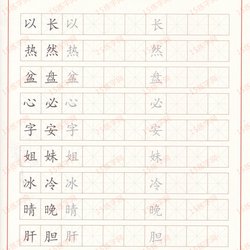 以 长 以 长
热 然 热 然
盆 盘 盆 盘
心 必 心 必
字 安 字 安
姐 妹 姐 妹
冰 冷 冰 冷
晴 晚 晴 晚
肝 胆 肝 胆